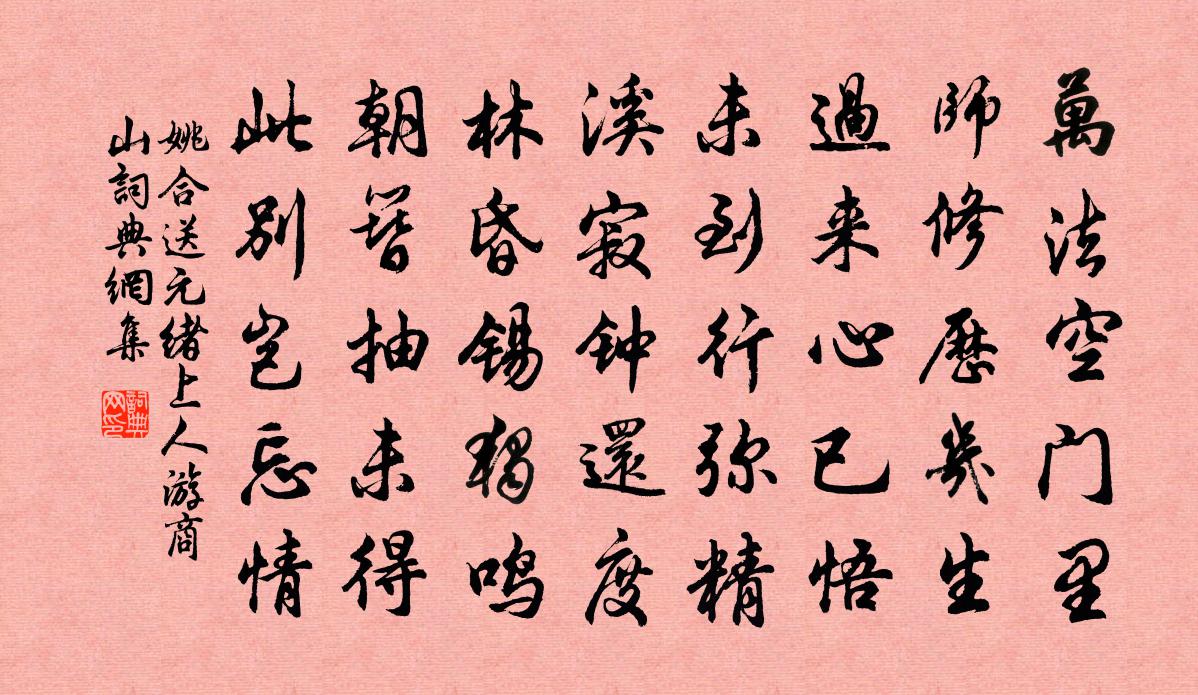 萬法空门里
師修歷幾生
過来心已悟
未到行弥精
溪寂钟還度
林昏锡独鸣
朝簪抽未得
此别岂忘情
姚合送元緒上人游商
山詞典網集
詞典网印